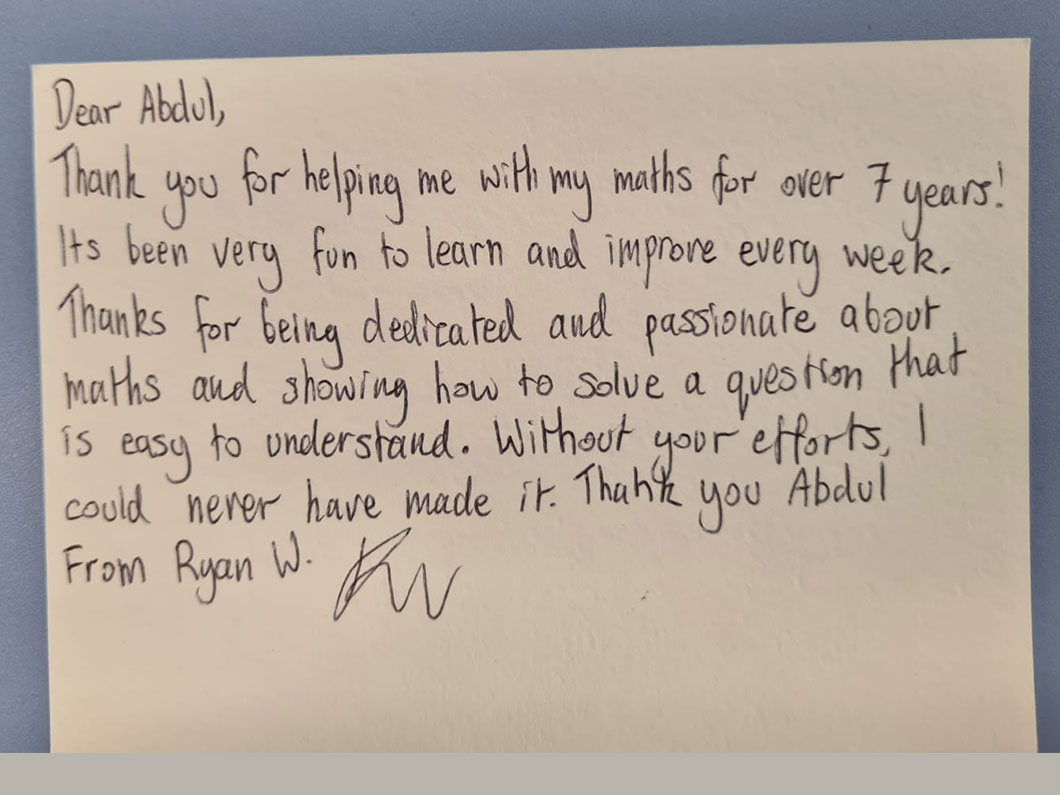 Dear Abdul,
Thank you for helping me with my maths for over 7 years!
Its been very fun to learn and improve every week.
Thanks for being dedicated and passionate about
maths and showing how to solve a question that
is easy to understand. Without your efforts, I
could never have made it. Thank you Abdul
From Ryan W. RW